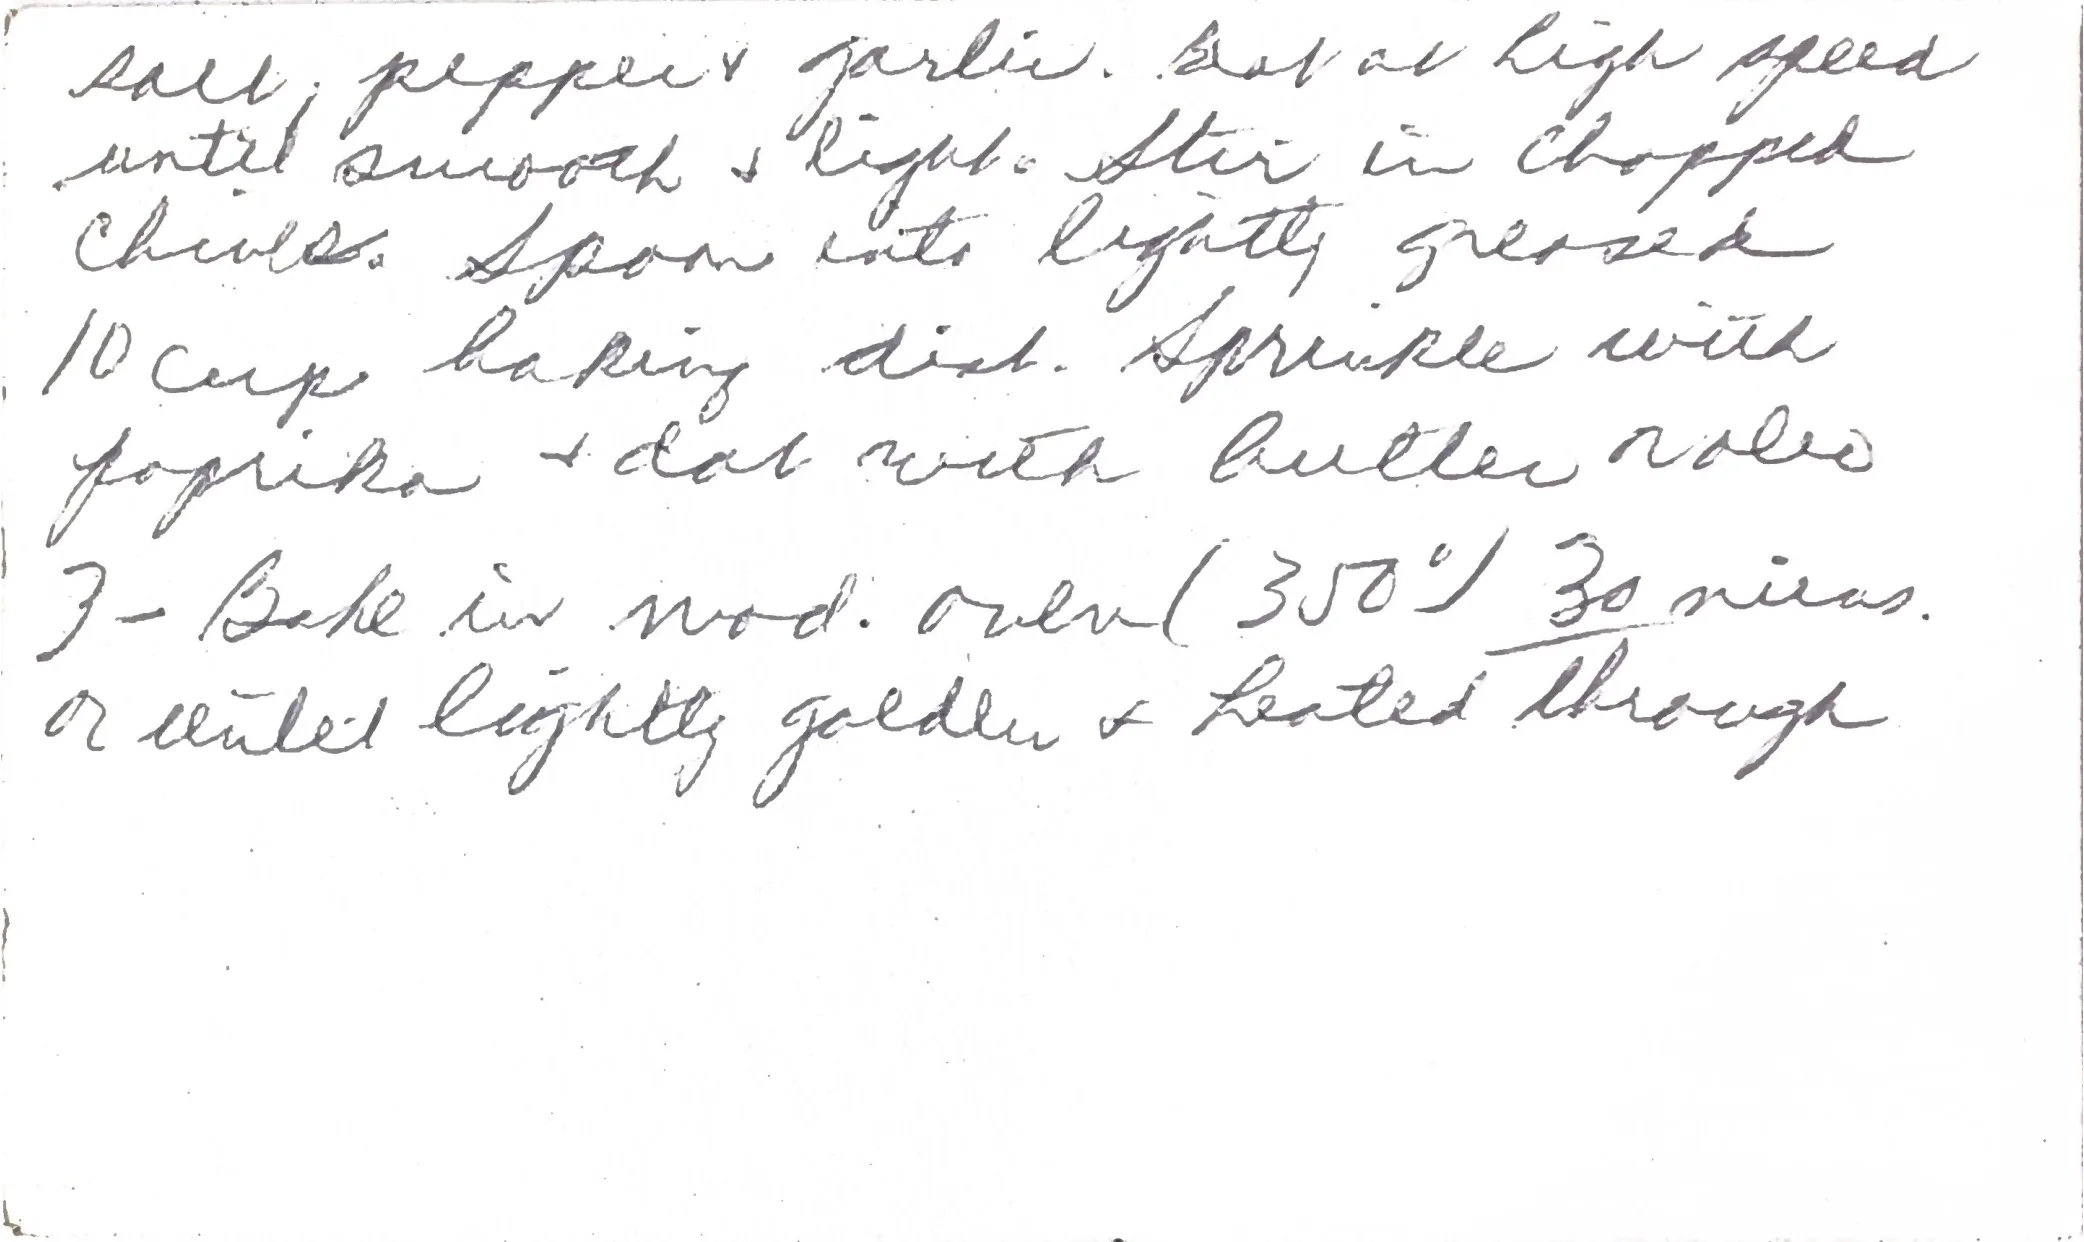 salt, pepper & garlic. Beat at high speed
until smooth & light. Stir in chopped
chives. Spoon into lightly greased
10 cup baking dish. Sprinkle with
paprika & dot with butter or oleo
3- Bake in mod. oven (350°) 30 mins.
or until lightly golden & heated through